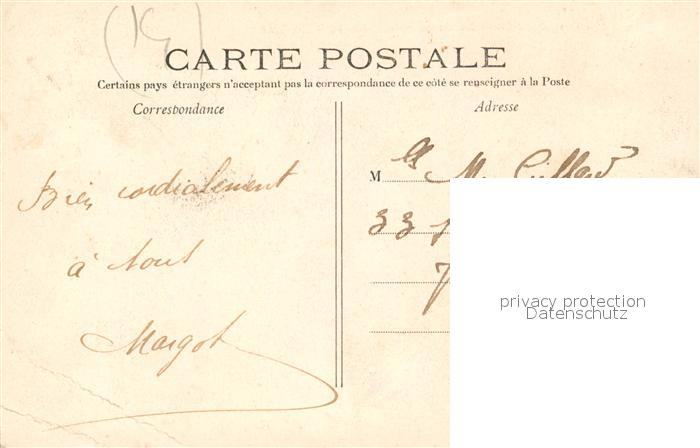 CARTE POSTALE
Certains pays étrangers n'acceptant pas la correspondance de ce côté se renseigner à la Poste
Correspondance
Adresse
Bien cordialement
à tous
Margot
M
33
privacy protection
Datenschutz